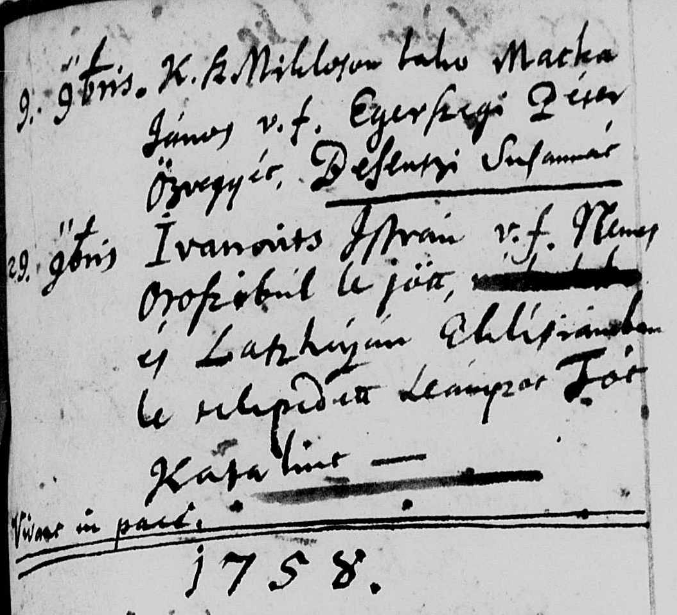 9. 9bris. K. Sz. Mikloson lako Macka
János v. f. Egerszegi Péter
Özvegyét, Desentzi Susannát
29. 9bris Ivanovits István v. f. Nemes
Oroszibúl le jött,
és Laczházán Eklésiánkban
le telepedett Leányzot Tót
Katalint —
Vivant in pace.
1758.